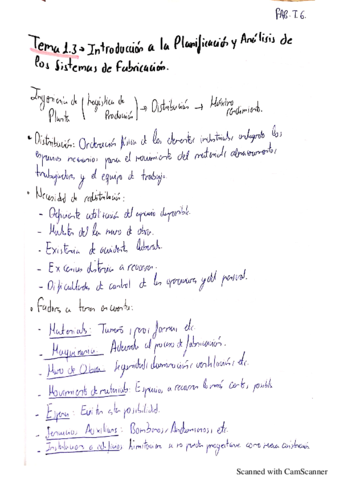 PAR-T.6.
Tema 1.3 → Introducción a la Planificación y Análisis de
los Sistemas de Fabricación.
Ingeniería de (Logística de → Distribución → Máximo
Planta Producción) rendimiento.
• Distribución: Ordenación física de los elementos industriales, incluyendo los
espacios necesarios para el movimiento del material, almacenamientos,
trabajadores y el equipo de trabajo.
• Necesidad de redistribución:
- Deficiente utilización del espacio disponible.
- Malestar de la mano de obra.
- Existencia de accidentes laborales.
- Excesiva distancia a recorrer.
- Dificultades de control de las operaciones y del personal.
• Factores a tener en cuenta:
- Materiales: Tamaño, peso, forma, etc.
- Maquinaria: Adecuada al proceso de fabricación.
- Mano de Obra: Seguridad, iluminación, ventilación, etc.
- Movimiento de materiales: Espacios a recorrer lo más cortos posible
- Espera: Evitar esta posibilidad.
- Servicios Auxiliares: Bomberos, etc.
- Instalaciones Limitación no puede proyectarse como nueva construcción
Scanned with CamScanner